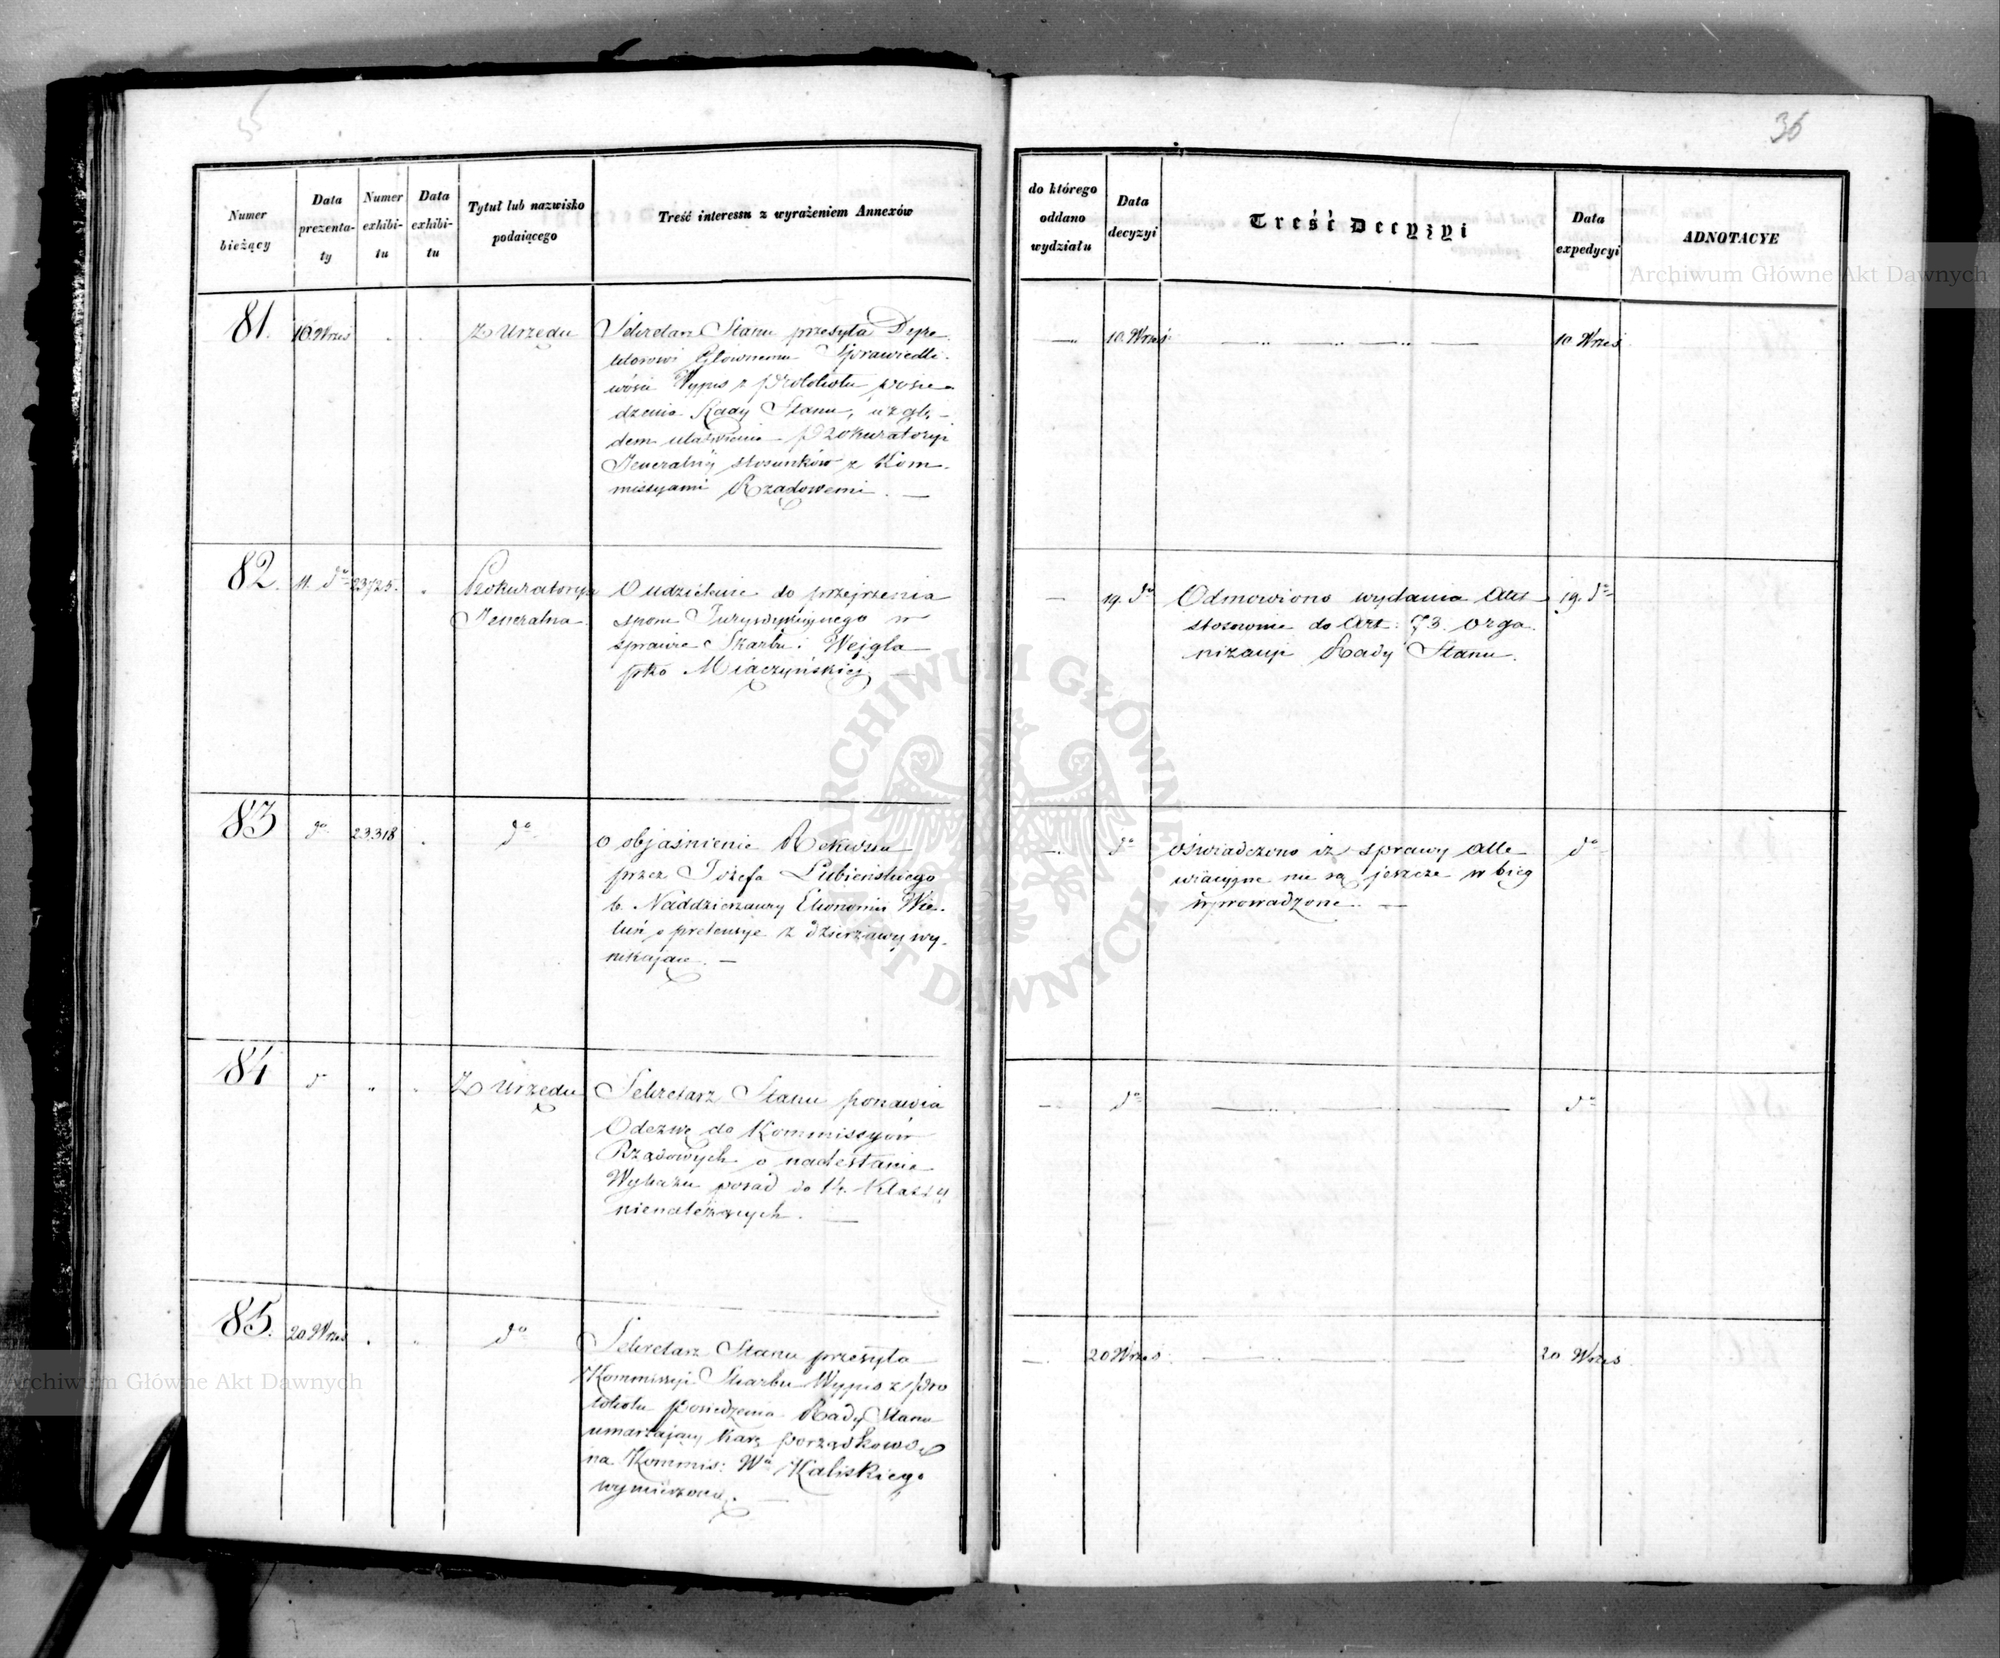 35
36
Numer bieżący
Data prezenta-ty
Numer exhibi-tu
Data exhibi-tu
Tytuł lub nazwisko podaiącego
Treść interessu z wyrażeniem Annexów
do którego oddano wydziału
Data decyzyi
Treść Decyzyi
Data expedycyi
ADNOTACYE
81. 10. Wrześ Z Urzędu
Sekretarz Stanu przesyła Dyre
ktorowi Głównemu Sprawiedli-
wości Wypis z Protokołu posie-
dzenia Rady Stanu, wzglę-
dem ułatwienia Prokuratoryi
Jeneralnÿ stosunków z Kom-
missyami Rządowemi. —
— 10. Wrześ — „ — „ — „ — 10 Wrześ
82. 11. do 23725. „ Prokuratorya
Jeneralna.
O udzielenie do przejrzenia
sporu Jurysdykcyjnego w
sprawie Skarbu i Wejgla
pko Miączyńskiej —
— 19. do Odmówiono wydania Akt 19. do
stosownie do Art: 73. Orga
nizacyi Rady Stanu.
83 do 23318 „ do
o objaśnienie Rekursu
przez Józefa Lubieńskiego
b. Naddzierżawcy Ekonomii Wie-
luń o pretensye z dzierżawy wy-
nikające. —
— do oświadczono iż sprawy Alle do
wiacyjne nie są jeszcze w bieg
wprowadzone. —
84 do „ „ Z Urzędu
Sekretarz Stanu ponawia
Odezwę do Kommissyów
Rządowych o nadesłanie
Wykazu posad do 14. Klassy
nienależących. —
— do — „ — — do
85. 20 Wrześ „ „ do
Sekretarz Stanu przesyła
Kommissyi Skarbu Wypis z Pro
tokołu Posiedzenia Rady Stanu
umarzający karę porządkową
na Kommis: Wa Kaliskiego
wymierzoną. —
— 20 Wrześ — — — — 20 Wrześ
Archiwum Główne Akt Dawnych
Archiwum Główne Akt Dawnych
ARCHIWUM GŁÓWNE AKT DAWNYCH